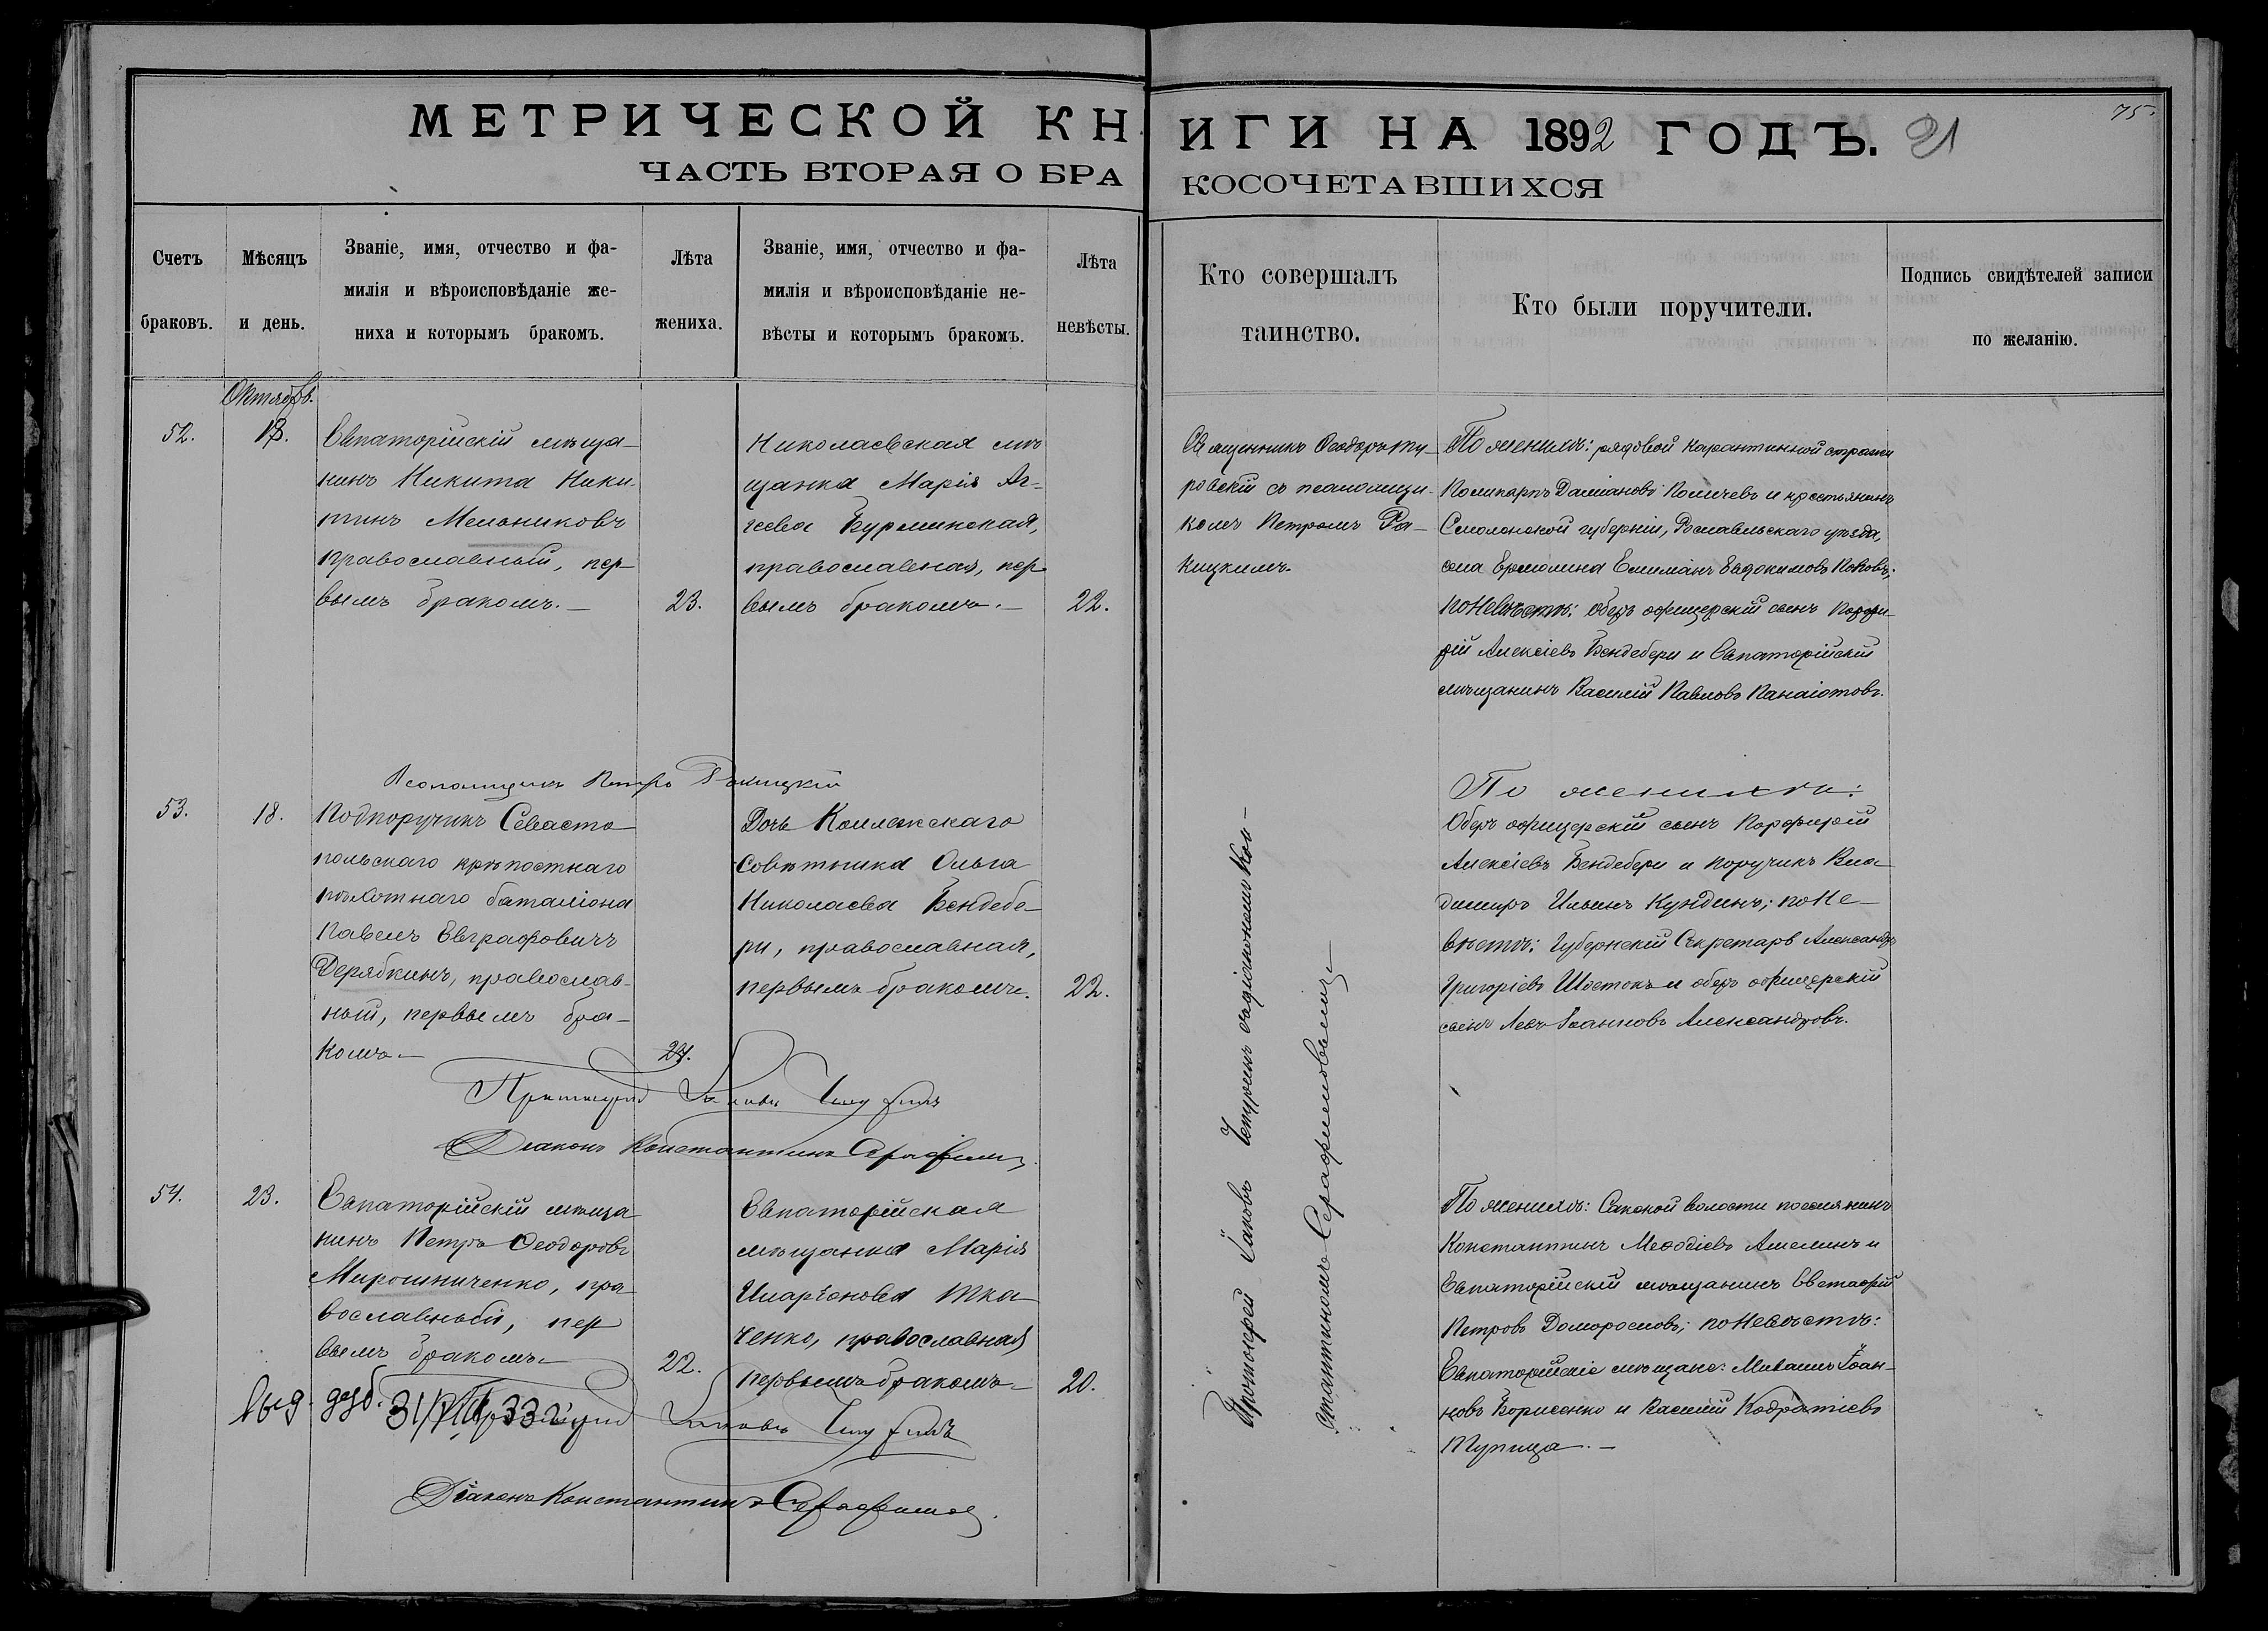 МЕТРИЧЕСКОЙ КНИГИ НА 1892 ГОДЪ. 21
75.
ЧАСТЬ ВТОРАЯ О БРАКОСОЧЕТАВШИХСЯ
Счетъ браковъ.
Мѣсяцъ и день.
Званіе, имя, отчество и фа-
милія и вѣроисповѣданіе же-
ниха и которымъ бракомъ.
Лѣта жениха.
Званіе, имя, отчество и фа-
милія и вѣроисповѣданіе не-
вѣсты и которымъ бракомъ.
Лѣта невѣсты.
Кто совершалъ
таинство.
Кто были поручители.
Подпись свидѣтелей записи
по желанію.
Октябрь.
52.
18.
Евпаторійскій мѣща-
нинъ Никита Ники-
тинъ Мельниковъ
православный, пер-
вымъ бракомъ.—
23.
Николаевская мѣ-
щанка Марія
Бурлинская,
православная, пер-
вымъ бракомъ.—
22.
Священникъ Ѳеодоръ Ту-
ровскій съ псаломщи-
комъ Петромъ Ра-
кицкимъ.
По женихѣ: рядовой карантинной стражи
Поликарпъ Даміановъ и крестьянинъ
Смоленской губерніи, Рославльскаго уѣзда,
села Ермолина Евдокимовъ
по невѣстѣ: оберъ офицерскій сынъ Порфи-
рій Алексіевъ Бендебери и Евпаторійскій
мѣщанинъ Василій Павловъ Панаіотовъ.
Псаломщикъ Петръ Ракицкій
53.
18.
Подпоручикъ Севасто-
польскаго крѣпостнаго
пѣхотнаго баталіона
Павелъ Евграфовичъ
Дерябкинъ, православ-
ный, первымъ бра-
комъ.—
24.
Дочь Коллежскаго
Совѣтника Ольга
Николаева Бендебе-
ри, православная,
первымъ бракомъ.
22.
Протоіерей Іаковъ Чепуринъ съ діакономъ Кон-
стантиномъ Серафимовымъ
По женихѣ:
Оберъ офицерскій сынъ Порфирій
Алексіевъ Бендебери и поручикъ Вла-
диміръ Ильинъ Кундинъ; по не-
вѣстѣ: Губернскій Секретарь Александръ
Григоріевъ Шостокъ и оберъ офицерскій
сынъ Левъ Іоанновъ Александровъ.
Протоіерей Іаковъ Чепуринъ
Діаконъ Константинъ Серафимовъ.
54.
23.
Евпаторійскій мѣща-
нинъ Петръ Ѳеодоровъ
Мирошниченко, пра-
вославный, пер-
вымъ бракомъ—
22.
Евпаторійская
мѣщанка Марія
Иларіонова Тка-
ченко, православная
первымъ бракомъ—
20.
По женихѣ: Сакской волости поселянинъ
Константинъ Меѳодіевъ Амелинъ и
Евпаторійскій мѣщанинъ Евстафій
Петровъ Доморословъ; по невѣстѣ:
Евпаторійскіе мѣщане: Михаилъ Іоан-
новъ Борисенко и Василій Кодратіевъ
Турпица.—
Выд. дуб.
Протоіерей Іаковъ Чепуринъ
Діаконъ Константинъ Серафимовъ.